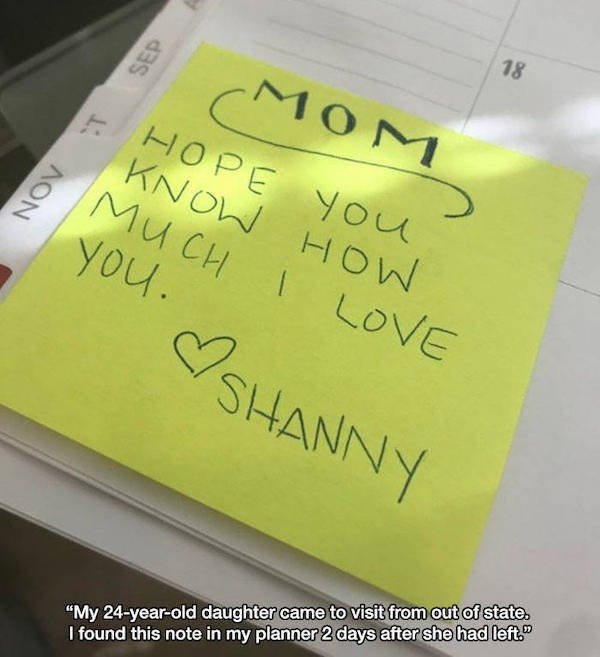 SEP
18
NOV
MOM
HOPE YOU
KNOW HOW
MUCH I LOVE
YOU.
♡SHANNY
“My 24-year-old daughter came to visit from out of state.
I found this note in my planner 2 days after she had left.”